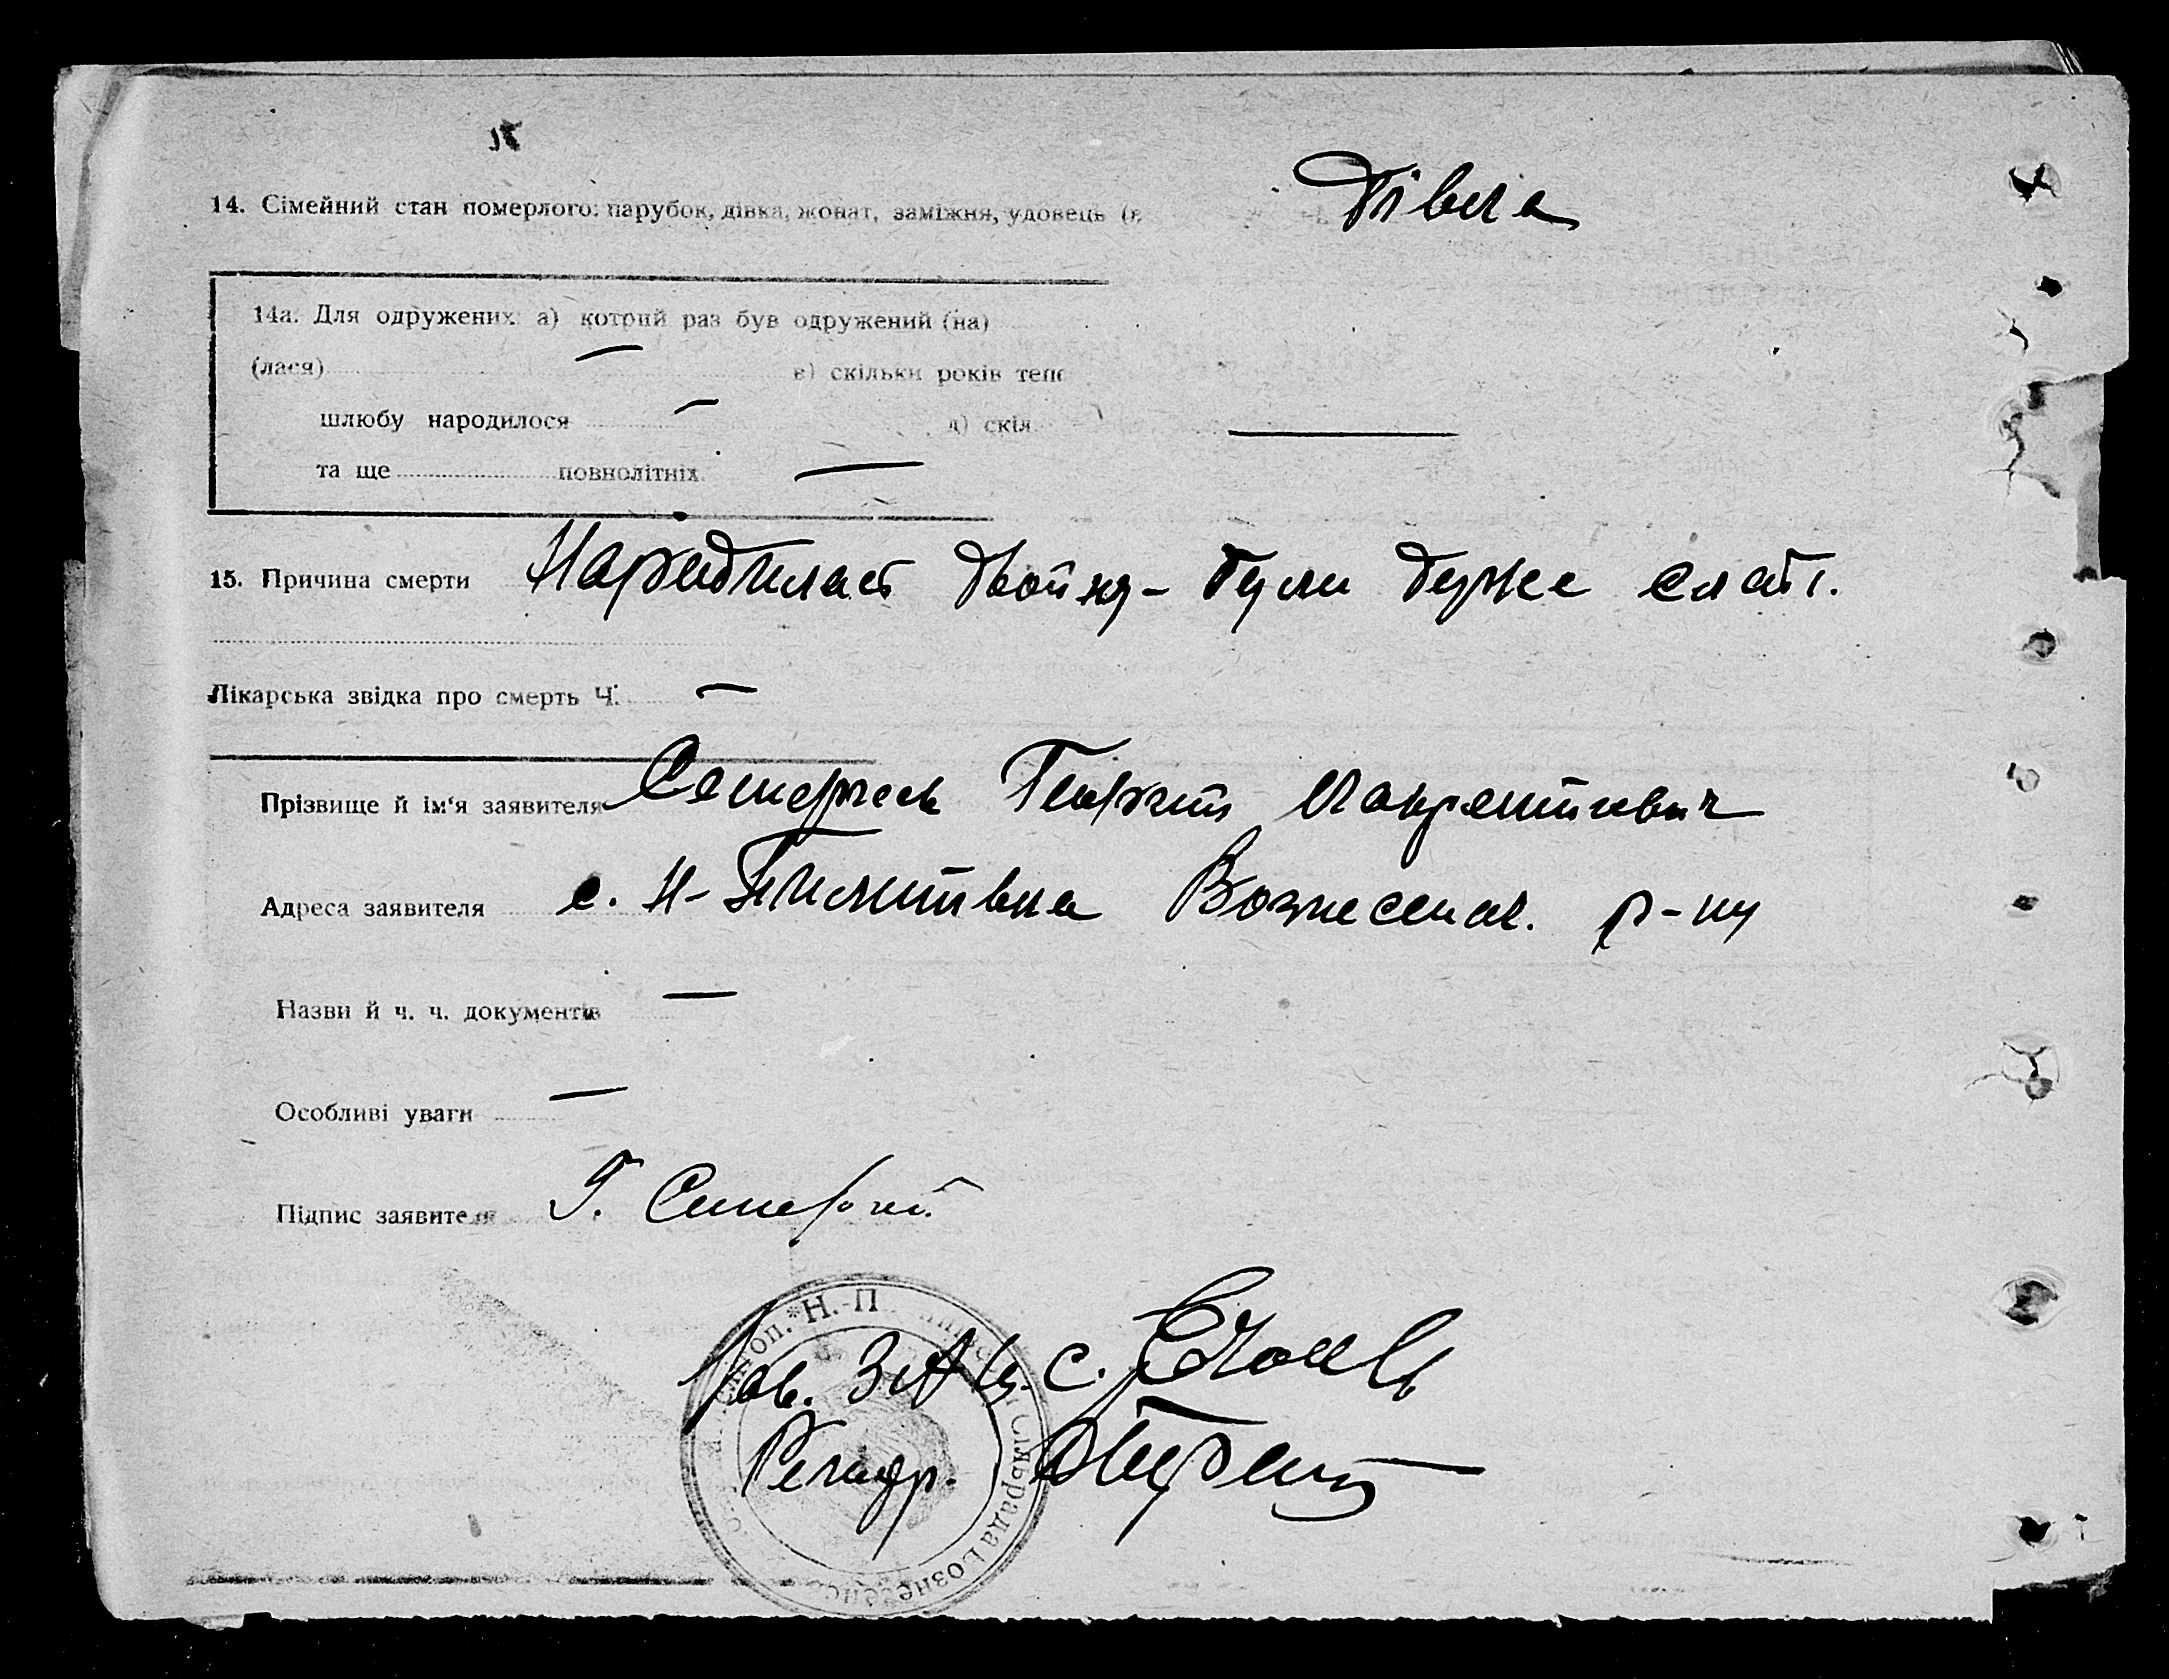 14. Сімейний стан померлого: парубок, дівка, жонат, заміжня, удовець Дівка
14а. Для одружених: а) котрий раз був одружений (на)
(лася) в) скільки років
шлюбу народилося д) скіл
та ще повнолітніх
15. Причина смерти Народилась двойня – були дуже слабі.
Лікарська звідка про смерть Ч. —
Прізвище й ім'я заявителя Георгій
Адреса заявителя с. Н- Вознесенск. р-ну
Назви й ч. ч. документів —
Особливі уваги —
Підпис заявителя Г.
Н.-П
Зав. ЗАКС.
Реєстр.
Сільрада Вознесенс